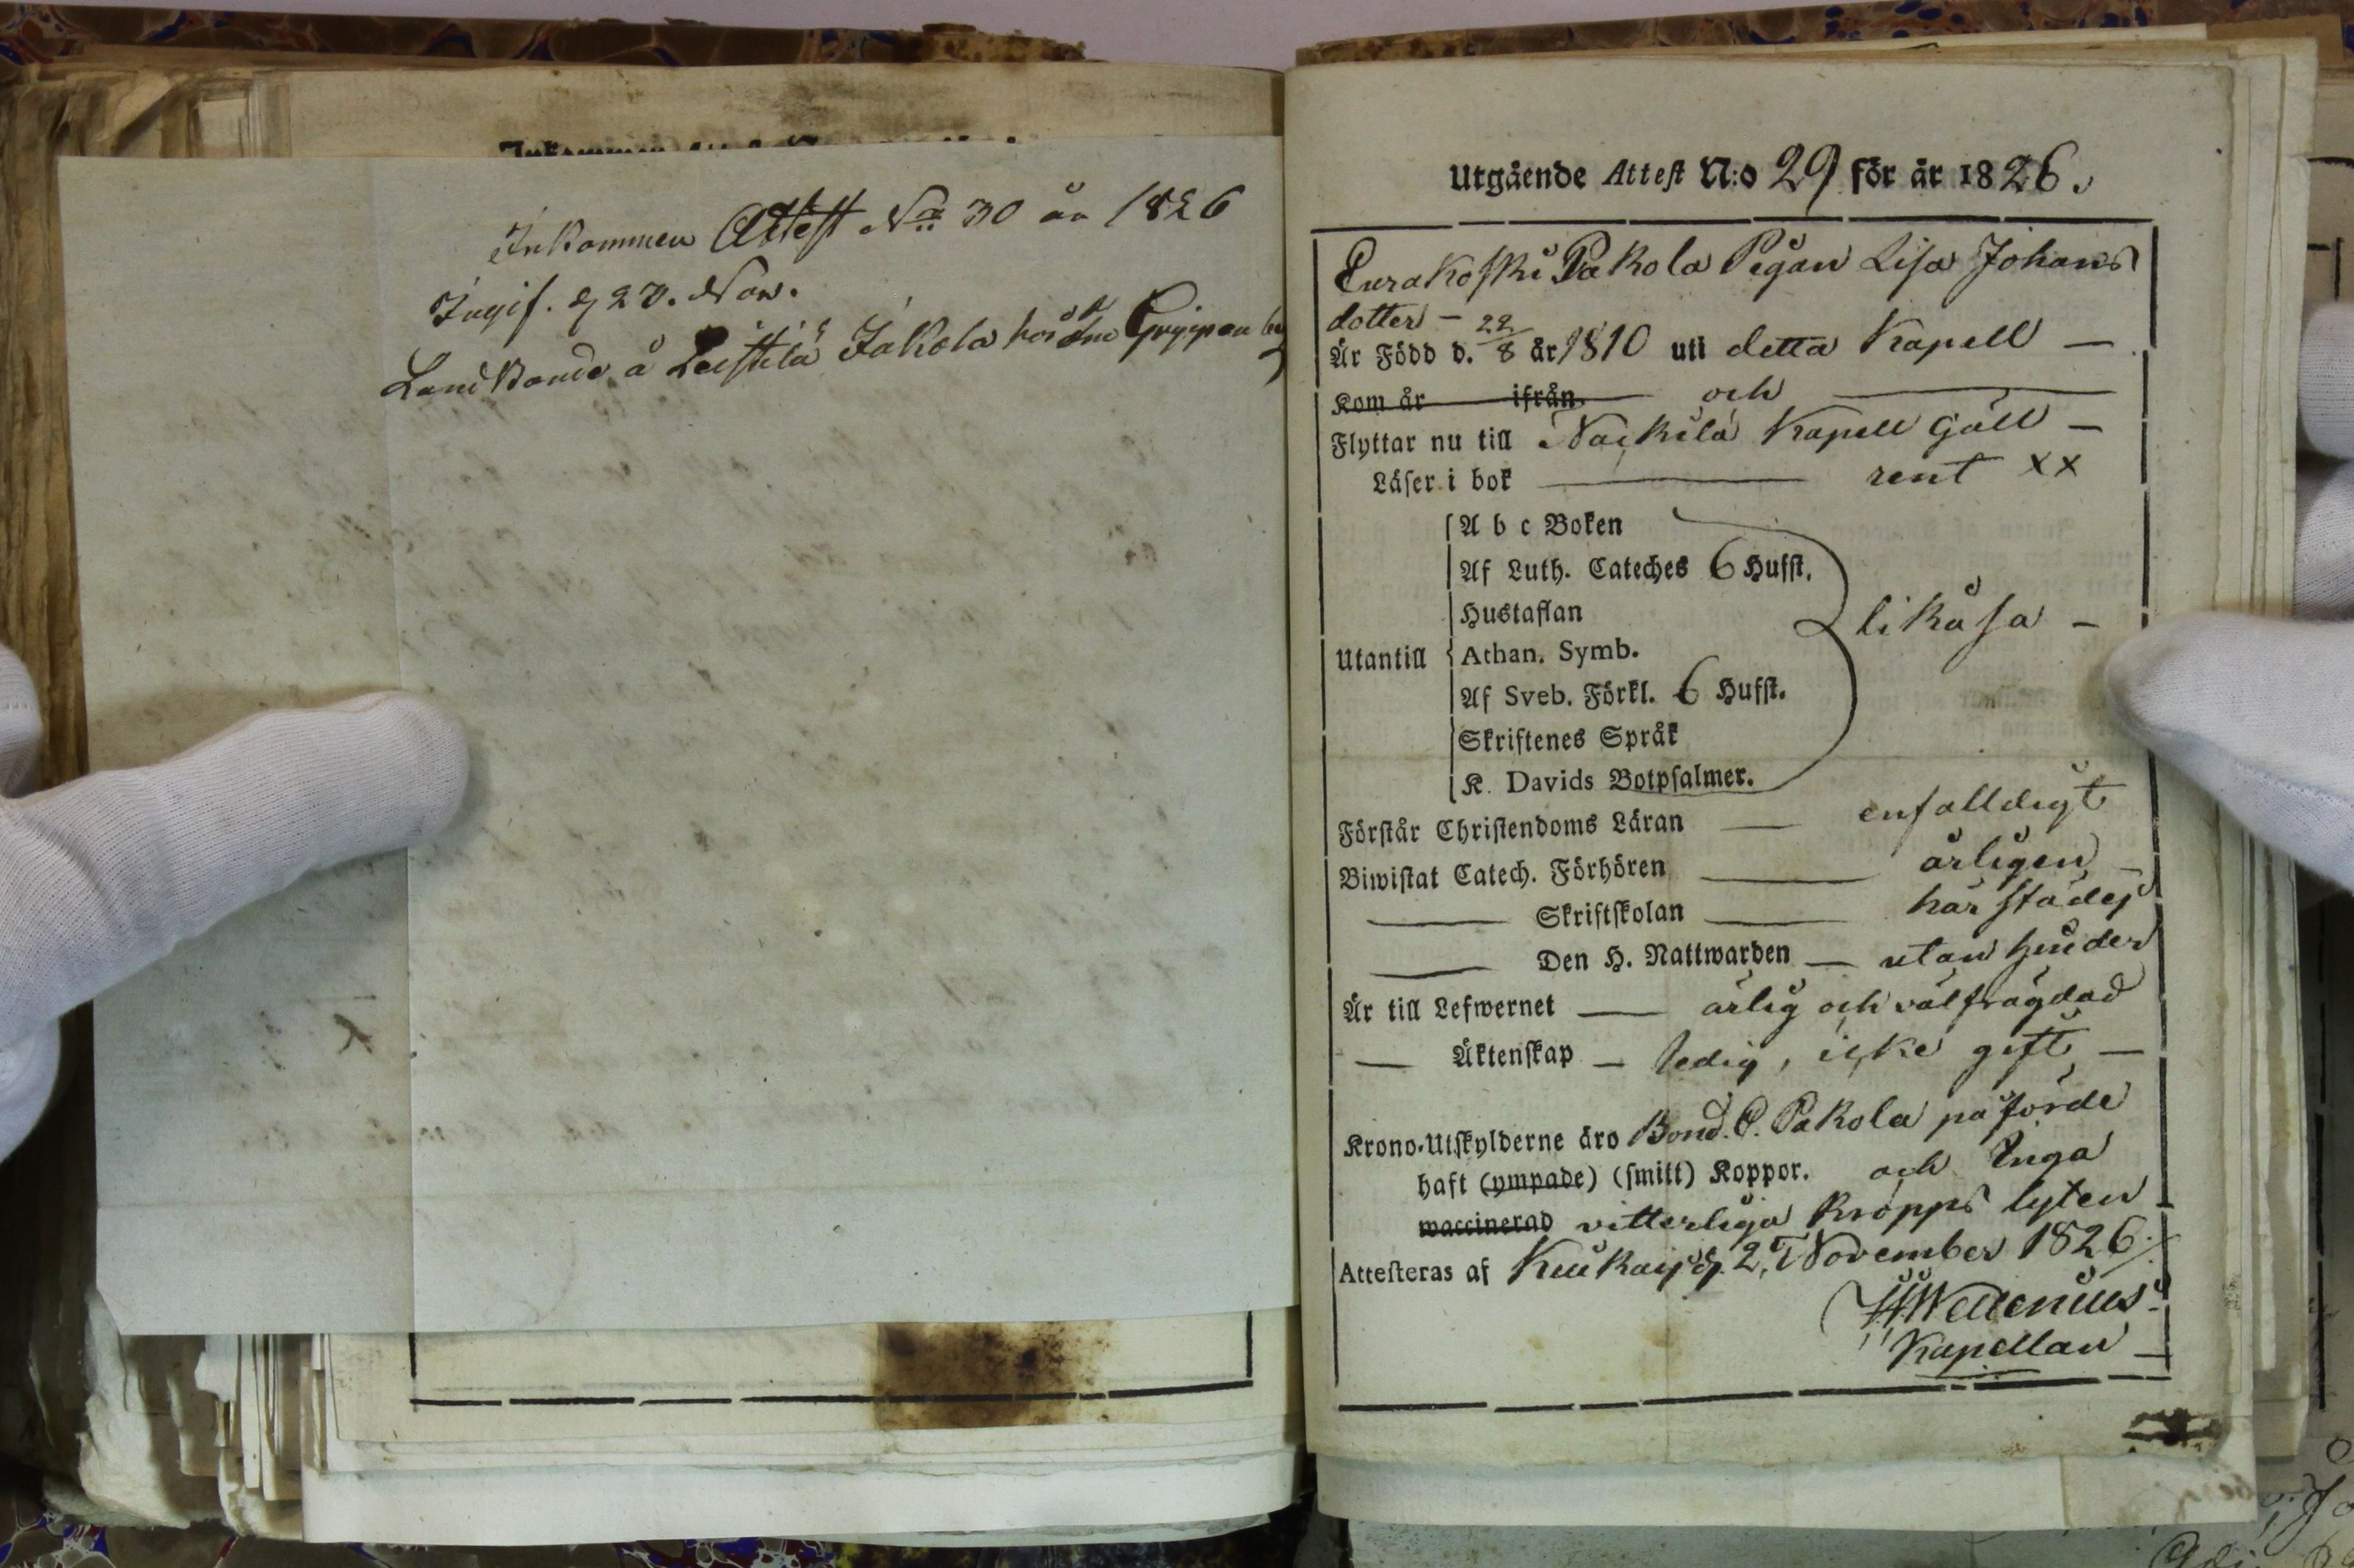 Inkommen Attest No 30 år 1826
Ingif. d 23. Nov.
Landbonde å Leistilä Jakola hos
Utgående Attest N:o 29 för år 1826.
Eurakoski Pakola Pigan Lisa Johans
dotter –
Är Född d. 22/8 år 1810 uti detta Kapell –
Kom år ifrån och
Flyttar nu till Nackila Kapell Gäll –
Läser i bok — rent xx
A b c Boken
Af Luth. Cateches 6 Hufst.
Hustaflan
likåsa –
Utantill Athan. Symb.
Af Sveb. Förkl. 6 Hufst.
Skriftenes Språk
K. Davids Botpsalmer.
Förstår Christendoms Läran — enfalldigt
Biwistat Catech. Förhören — årligen –
— Skriftskolan — härstädes
— Den H. Nattwarden — utan hinder
Är till Lefwernet — ärlig och välfrägdad
— Äktenskap — ledig, icke gift –
Krono-Utskylderne äro Bond. P. Pakola påförde
haft (ympade) (smitt) Koppor. och Inga
waccinerad vitterliga kropps lyten
Attesteras af Kiukais d. 2 November 1826.
Wellenius
Kapellan –